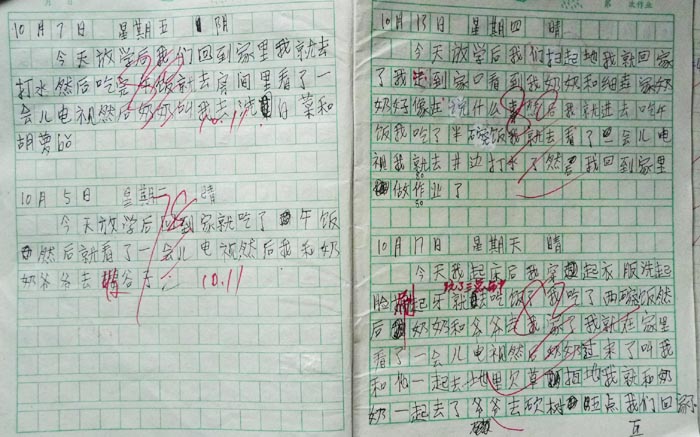 10月7日 星期五 阴
今天放学后我们回到家里我就去
打水然后吃完午饭就去房间里看了一
会儿电视然后奶奶叫我去 白菜和
胡萝
10.11
10月5日 星期二 晴
今天放学后回到家就吃了午饭
然后就看了一会儿电视然后我和奶
奶爷爷去 谷子
10.11
次作业
10月13日 星期四 晴
今天放学后我们扫起地我就回家
了我走到家口看到我奶奶和 家奶
奶好像在说什么 然后我就进去吃午
饭我吃了半碗饭我就去看了一会儿电
视我就去井边打水了然后我回到家里
做作业了
10月17日 星期天 晴
今天我起床后我穿起衣服洗起
脸 起牙就去吃饭了我吃了两碗饭然
后奶奶和爷爷 我家了我就在家里
看了一会儿电视然后奶奶过来了叫我
和他一起去地里 草 地我就和奶
奶一起去了爷爷去砍树 点我们回家